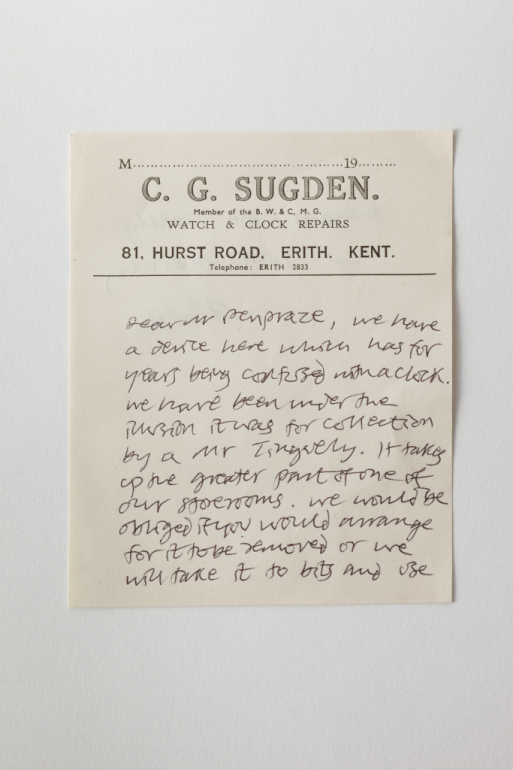 M...........................................19.........
C. G. SUGDEN.
Member of the B. W. & C. M. G.
WATCH & CLOCK REPAIRS
81, HURST ROAD, ERITH. KENT.
Telephone: ERITH 2833
Dear Mr Penpraze, we have
a device here which has for
years being confused with a clock.
we have been under the
illusion it was for collection
by a Mr Tinguely. It takes
up the greater part of one of
our storerooms. we would be
obliged if you would arrange
for it to be removed or we
will take it to bits and use